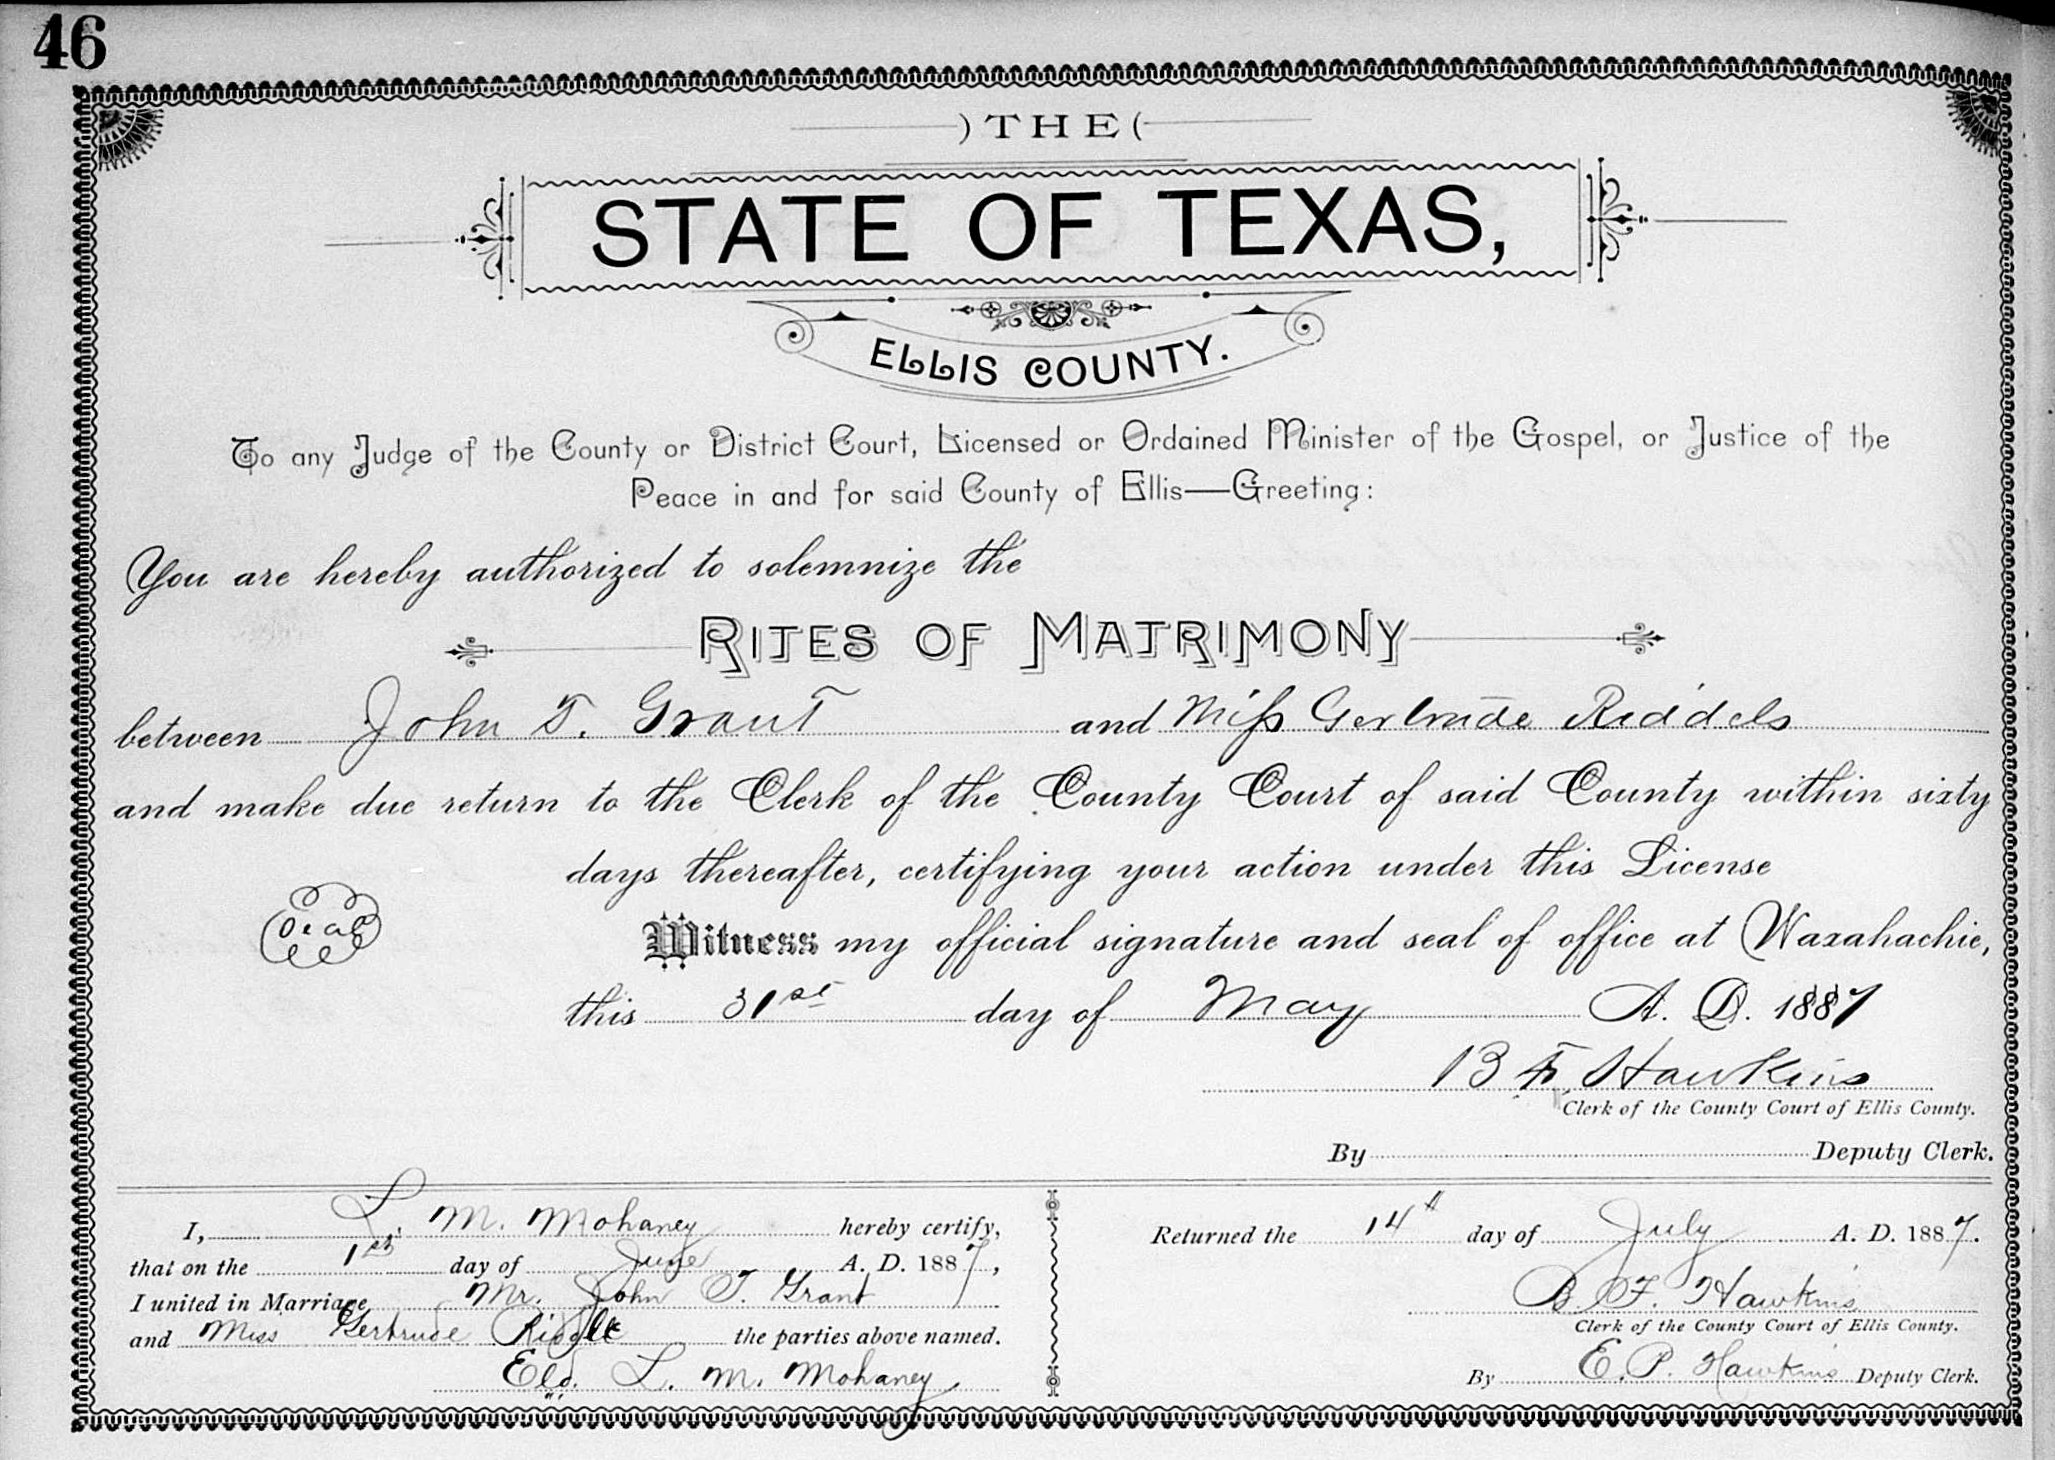 46
THE
STATE OF TEXAS,
ELLIS COUNTY.
To any Judge of the County or District Court, Licensed or Ordained Minister of the Gospel, or Justice of the
Peace in and for said County of Ellis—Greeting:
You are hereby authorized to solemnize the
RITES OF MATRIMONY
between John T. Grant and Miss Gertrude Riddels
and make due return to the Clerk of the County Court of said County within sixty
days thereafter, certifying your action under this License
Seal
Witness my official signature and seal of office at Waxahachie,
this 31st day of May A. D. 1887
B F. Hawkins
Clerk of the County Court of Ellis County.
By Deputy Clerk.
I, L. M. Mohaney hereby certify,
that on the 1st day of June A. D. 1887,
I united in Marriage Mr. John T. Grant
and Miss Gertrude Riddle the parties above named.
Eld. L. M. Mohaney
Returned the 14th day of July A. D. 1887.
B. F. Hawkins
Clerk of the County Court of Ellis County.
By E. P. Hawkins Deputy Clerk.